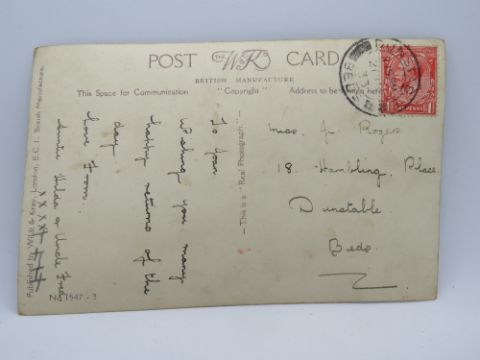 POST THE W&K CARD
BRITISH MANUFACTURE
This Space for Communication "Copyright" Address to be written here
To Joan
Wishing you many
happy returns of the
day
Love From
Auntie Hilda & Uncle Fred
XXXX
Miss. J. Rogers
18. Hambling. Place.
Dunstable.
Beds.
— This is a "Real Photograph" —
Published by Wildt & Kray, London, E.C.1. British Manufacture.
No. 1547 - 3
DUNSTABLE
BEDS
1